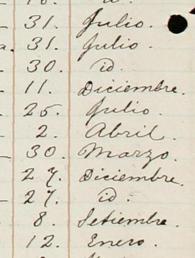 31. Julio.
31. Julio.
30. id.
11. Diciembre.
25. Julio.
2. Abril.
30. Marzo.
27. Diciembre.
27. id.
8. Setiembre.
12. Enero.